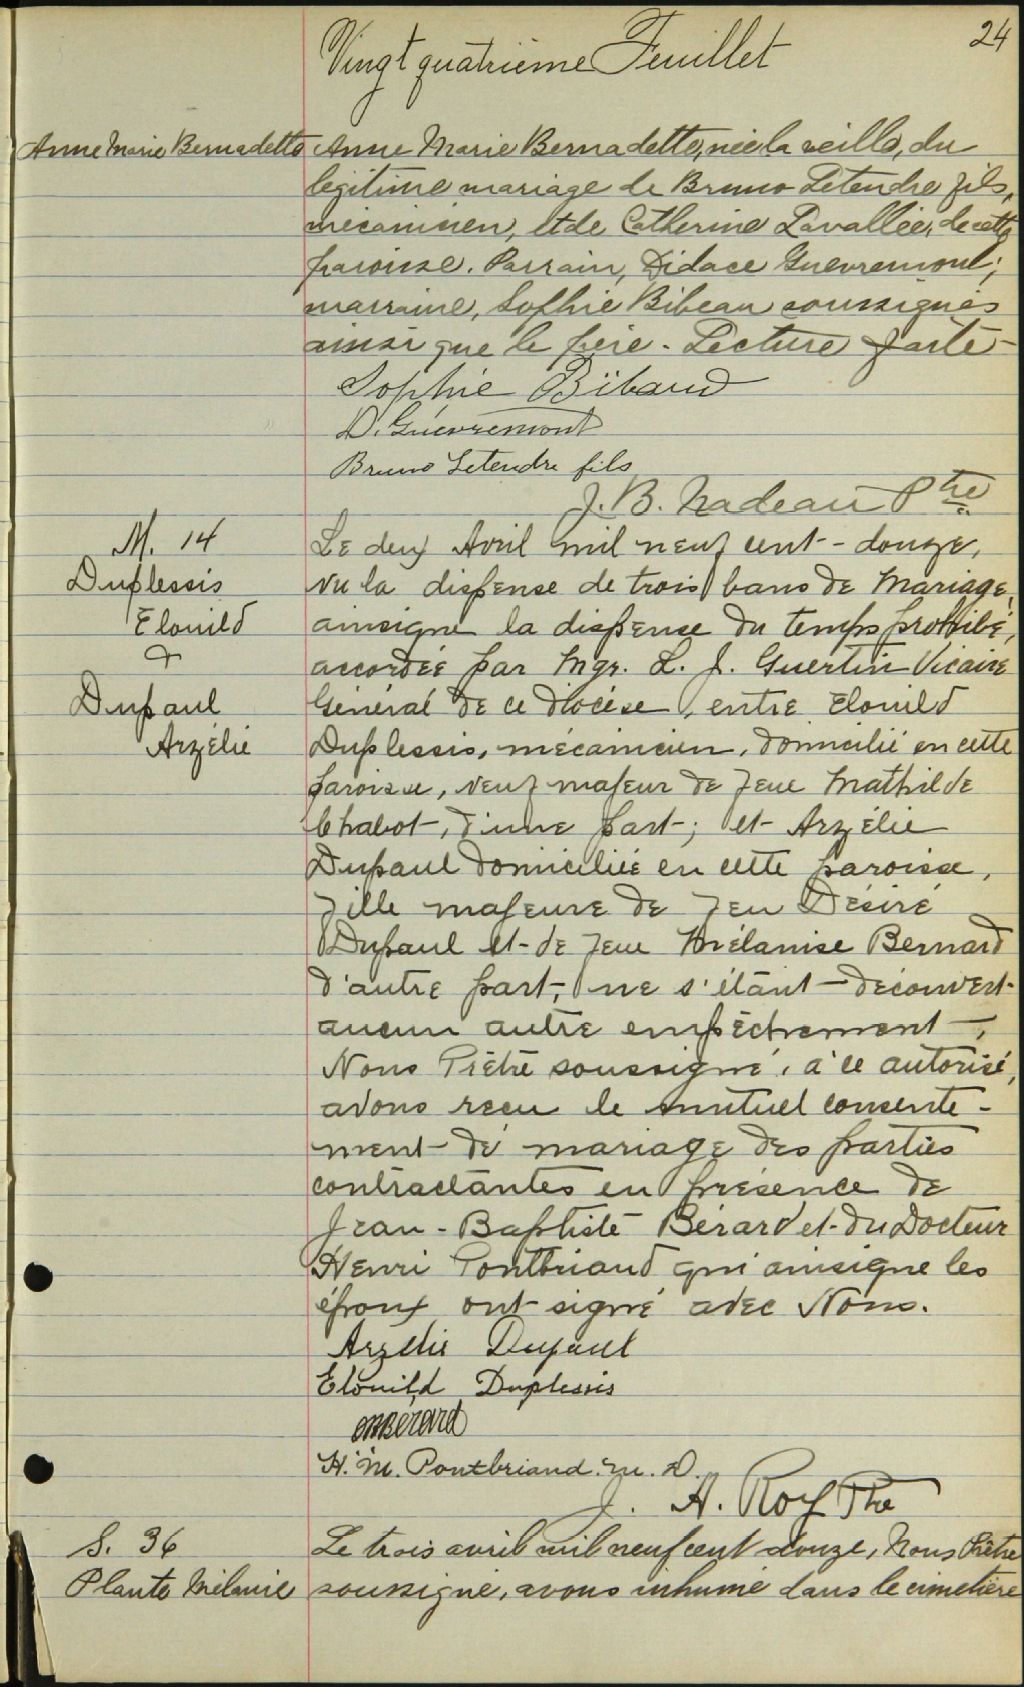 24
Vingt quatrième Feuillet
Anne Marie Bernadette
Anne Marie Bernadette, née la veille, du
légitime mariage de Bruno Letendre fils,
mécanicien, et de Catherine Lavallée, de cette
paroisse. Parrain, Didace Guevremont;
marraine, Sophie Bibeau soussignés
ainsi que le père. Lecture faite -
Sophie Bibaud
D. Guévremont
Bruno Letendre fils
J. B. Nadeau Ptre
M. 14
Duplessis
Elouild
&
Dupaul
Arzélie
Le deux Avril mil neuf cent - douze,
vu la dispense de trois bans de Mariage,
ainsique la dispense du temps prohibé,
accordée par Mgr. L. J. Guertin Vicaire
Général de ce diocèse, entre Elouild
Duplessis, mécanicien, domicilié en cette
paroisse, veuf majeur de feue Mathilde
Chabot, d'une part; et Arzélie
Dupaul domiciliée en cette paroisse,
fille majeure de feu Désiré
Dupaul et de feue Mélanise Bernard
d'autre part, ne s'étant découvert
aucun autre empêchement,
Nous Prêtre soussigné, à ce autorisé,
avons reçu le mutuel consente-
ment de mariage des parties
contractantes en présence de
Jean - Baptiste Bérard et du Docteur
Henri Pontbriand qui ainsique les
époux ont signé avec Nous.
Arzélie Dupaul
Elouild Duplessis
Bérard
H. M. Pontbriand. M. D.
J. A. Roy Ptre
S. 36
Plante Mélanie
Le trois avril mil neuf cent douze, Nous Prêtre
soussigné, avons inhumé dans le cimetière